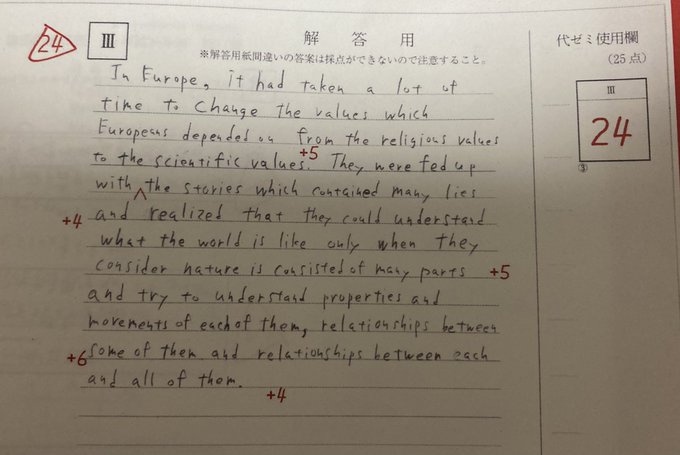 24
III
解答用
代ゼミ使用欄
※解答用紙間違いの答案は採点ができないので注意すること。
(25点)
III
24
③
In Europe, it had taken a lot of
time to change the values which
Europeans depended on from the religious values
+5
to the scientific values. They were fed up
with the stories which contained many lies
+4 and realized that they could understand
what the world is like only when they
consider nature is consisted of many parts +5
and try to understand properties and
movements of each of them, relationships between
+6 some of them and relationships between each
and all of them.
+4